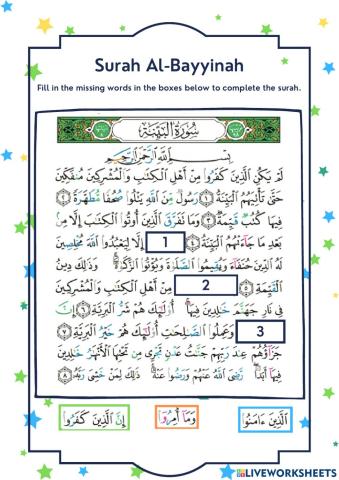 Surah Al-Bayyinah
Fill in the missing words in the boxes below to complete the surah.
سُورَةُ الْبَيِّنَةِ
بِسْمِ اللَّهِ الرَّحْمَٰنِ الرَّحِيمِ
لَمْ يَكُنِ الَّذِينَ كَفَرُوا مِنْ أَهْلِ الْكِتَابِ وَالْمُشْرِكِينَ مُنفَكِّينَ
حَتَّىٰ تَأْتِيَهُمُ الْبَيِّنَةُ ١ رَسُولٌ مِّنَ اللَّهِ يَتْلُو صُحُفًا مُّطَهَّرَةً ٢
فِيهَا كُتُبٌ قَيِّمَةٌ ٣ وَمَا تَفَرَّقَ الَّذِينَ أُوتُوا الْكِتَابَ إِلَّا مِن
بَعْدِ مَا جَاءَتْهُمُ الْبَيِّنَةُ ٤ 1 إِلَّا لِيَعْبُدُوا اللَّهَ مُخْلِصِينَ
لَهُ الدِّينَ حُنَفَاءَ وَيُقِيمُوا الصَّلَاةَ وَيُؤْتُوا الزَّكَاةَ وَذَٰلِكَ دِينُ
الْقَيِّمَةِ ٥ 2 مِنْ أَهْلِ الْكِتَابِ وَالْمُشْرِكِينَ
فِي نَارِ جَهَنَّمَ خَالِدِينَ فِيهَا أُولَٰئِكَ هُمْ شَرُّ الْبَرِيَّةِ ٦ إِنَّ
3 وَعَمِلُوا الصَّالِحَاتِ أُولَٰئِكَ هُمْ خَيْرُ الْبَرِيَّةِ ٧
جَزَاؤُهُمْ عِندَ رَبِّهِمْ جَنَّاتُ عَدْنٍ تَجْرِي مِن تَحْتِهَا الْأَنْهَارُ خَالِدِينَ
فِيهَا أَبَدًا رَّضِيَ اللَّهُ عَنْهُمْ وَرَضُوا عَنْهُ ذَٰلِكَ لِمَنْ خَشِيَ رَبَّهُ ٨
إِنَّ الَّذِينَ كَفَرُوا وَمَا أُمِرُوا الَّذِينَ ءَامَنُوا
LIVEWORKSHEETS